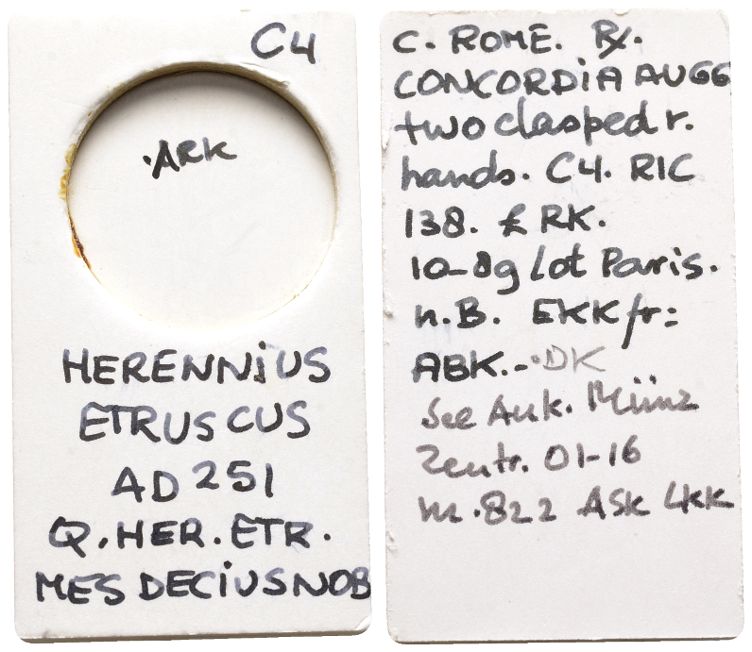 C4
.ARK
HERENNIUS
ETRUSCUS
AD 251
Q. HER. ETR.
MES DECIUS NOB
C. ROME. Rx.
CONCORDIA AUGG
two clasped r.
hands. C4. RIC
138. £ RK.
10-89 lot Paris.
n.B. EKK fr=
ABK.-.DK
See Auk. Münz
Zentr. 01-16
nr. 822 ASK 4KK